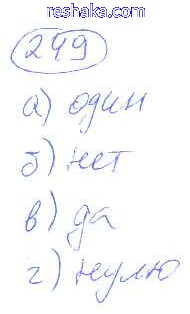 reshaka.com
249
а) один
б) нет
в) да
г) нулю